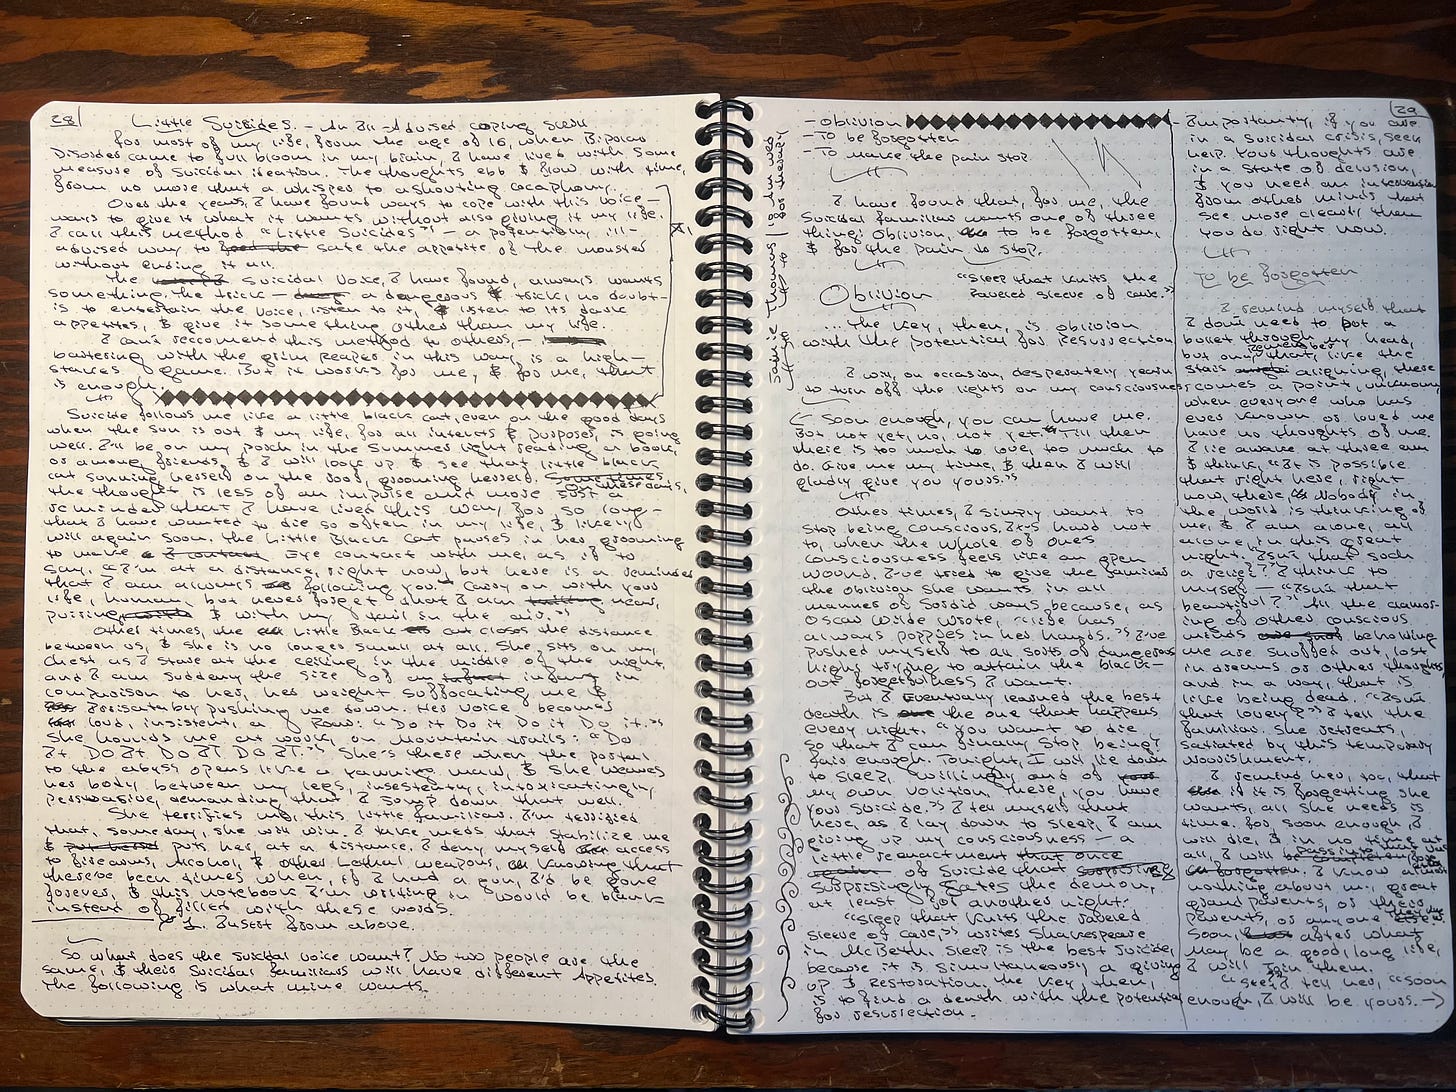 28
Little Suicides - An Ill-Advised coping skill
For most of my life, from the age of 16, when Bipolar
Disorder came to full bloom in my brain, I have lived with some
measure of suicidal ideation. The thoughts ebb & flow with time,
from no more that a whisper to a shouting cacaphony.
Over the years, I have found ways to cope with this voice -
ways to give it what it wants without also giving it my life.
I call this method "Little Suicides" - a potentially ill-
advised way to sate the appetite of the monster
without ending it all.
The Suicidal Voice, I have found, always wants
something. The trick - a dangerous trick, no doubt -
is to entertain the voice, listen to it, & listen to its dark
appetites, & give it something other than my life.
I can't reccomend this method to others, -
bartering with the grim Reaper in this way, is a high-
stakes game. But it works for me, & for me, that
is enough.
Suicide follows me like a little black cat, even on the good days
when the sun is out & my life, for all intents & purposes, is going
well. I'll be on my porch in the summer light reading a book,
or among friends, & I will look up & see that little black
cat sunning herself on the roof, grooming herself. Sometimes, these days,
the thought is less of an impulse and more just a
reminder that I have lived this way for so long -
that I have wanted to die so often in my life, & likely
will again soon. The Little Black Cat pauses in her grooming
to make eye contact with me, as if to
say, "I'm at a distance, right now, but here is a reminder
that I am always following you. Carry on with your
life, human, but never forget that I am near,
purring & with my tail in the air."
Other times, the Little Black cat closes the distance
between us, & she is no longer small at all. She sits on my
chest as I stare at the ceiling in the middle of the night,
and I am suddenly the size of an infant in
comparison to her, her weight suffocating me &
pushing me down. Her voice becomes
loud, insistent, a roar: "Do it Do it Do it Do it."
She hounds me at work, on mountain trails: "Do
It DO IT DO IT DO IT." She's there when the portal
to the abyss opens like a yawning maw, & she weaves
her body between my legs, insistently, intoxicatingly
persuasive, demanding that I jump down that well.
She terrifies me, this little familiar. I'm terrified
that, someday, she will win. I take meds that stabilize me
& puts her at a distance. I deny myself access
to firearms, alcohol, & other Lethal weapons, knowing that
there've been times when, if I had a gun, I'd be gone
forever, & this notebook I'm writing in would be blank
instead of filled with these words.
1. Insert from above.
So what does the suicidal voice want? No two people are the
same, & their suicidal familiars will have different Appetites.
The following is what mine wants.
- oblivion
- To be forgotten
- To make the pain stop
I have found that, for me, the
Suicidal familiar wants one of three
things: Oblivion, to be forgotten,
& for the pain to stop.
Oblivion
"Sleep that knits the
raveled sleeve of care."
...The key, then, is oblivion
with the potential for resurrection
I will, on occasion, desperately yearn
to turn off the lights on my consciousness
Soon enough, you can have me.
But not yet, no, not yet. Till then
there is too much to love, too much to
do. Give me my time, & then I will
gladly give you yours."
Other times, I simply want to
stop being conscious. It's hard not
to, when the whole of ones
consciousness feels like an open
wound. I've tried to give the familiar
the oblivion she wants in all
manner of sordid ways because, as
Oscar Wilde wrote, "She has
always poppies in her hands." I've
pushed myself to all sorts of dangerous
highs trying to attain the black-
out forgetfulness I want.
But I Eventually learned the best
death is the one that happens
every night. "You want to die
so that I can finally stop being?
Fair enough. Tonight, I will lie down
to sleep, willingly and of
my own volition. There, you have
your suicide." I tell myself that
here, as I lay down to sleep, I am
giving up my consciousness - a
little reenactment
of suicide that
Surprisingly sates the demon,
at least for another night.
"Sleep that knits the raveled
sleeve of care," writes Shakespeare
in McBeth. Sleep is the best suicide,
because it is simultaneously a giving
up & restoration. The key, then,
is to find a death with the potential
for resurrection.
29
Importantly, if you are
in a Suicidal crisis, seek
help. Your thoughts are
in a state of delusion,
& you need an intervention
from other minds that
see more clearly than
you do right now.
To be forgotten
I remind myself that
I don't need to put a
bullet through my head,
but only remember that, like the
stars aligning, there
comes a point, unknown,
when everyone who has
ever known or loved me
have no thoughts of me.
I lie awake at three am
& think, "It is possible
that right here, right
now, there is Nobody in
the world is thinking of
me, & I am alone, all
alone, in this great
night. Isn't that such
a relief?" I think to
myself - "Isn't that
beautiful?" All the clamor-
ing of other conscious
minds beholding
me are snuffed out, lost
in dreams or other thoughts
and in a way, that is
like being dead. "Isn't
that lovely?" I tell the
familiar. She retreats,
satiated by this temporary
nourishment.
I remind her, too, that
if it is forgetting she
wants, all she needs is
time. For soon enough, I
will die, & in no time at
all, I will be
I know almost
nothing about my great
grand parents, or theirs
Parents, or anyone
Soon after what
may be a good, long life,
I will Join them.
"See," I tell her, "soon
enough, I will be yours. →